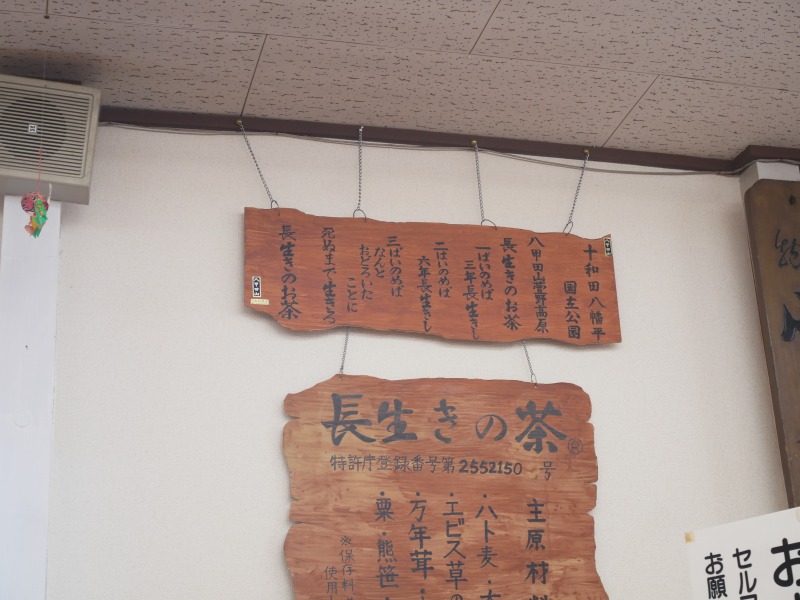 十和田八幡平
国立公園
八甲田山萱野高原
長生きのお茶
一ぱいのめば
三年長生きし
二はいのめば
六年長生きし
三ばいのめば
なんと
おどろいた
ことに
死ぬまで生きる
長生きのお茶
長生きの茶
特許庁登録番号第2552150号
主原材料
・ハト麦・
・エビス草の
・万年茸・
・粟・熊笹
※保存料
使用
お
セルフ
お願